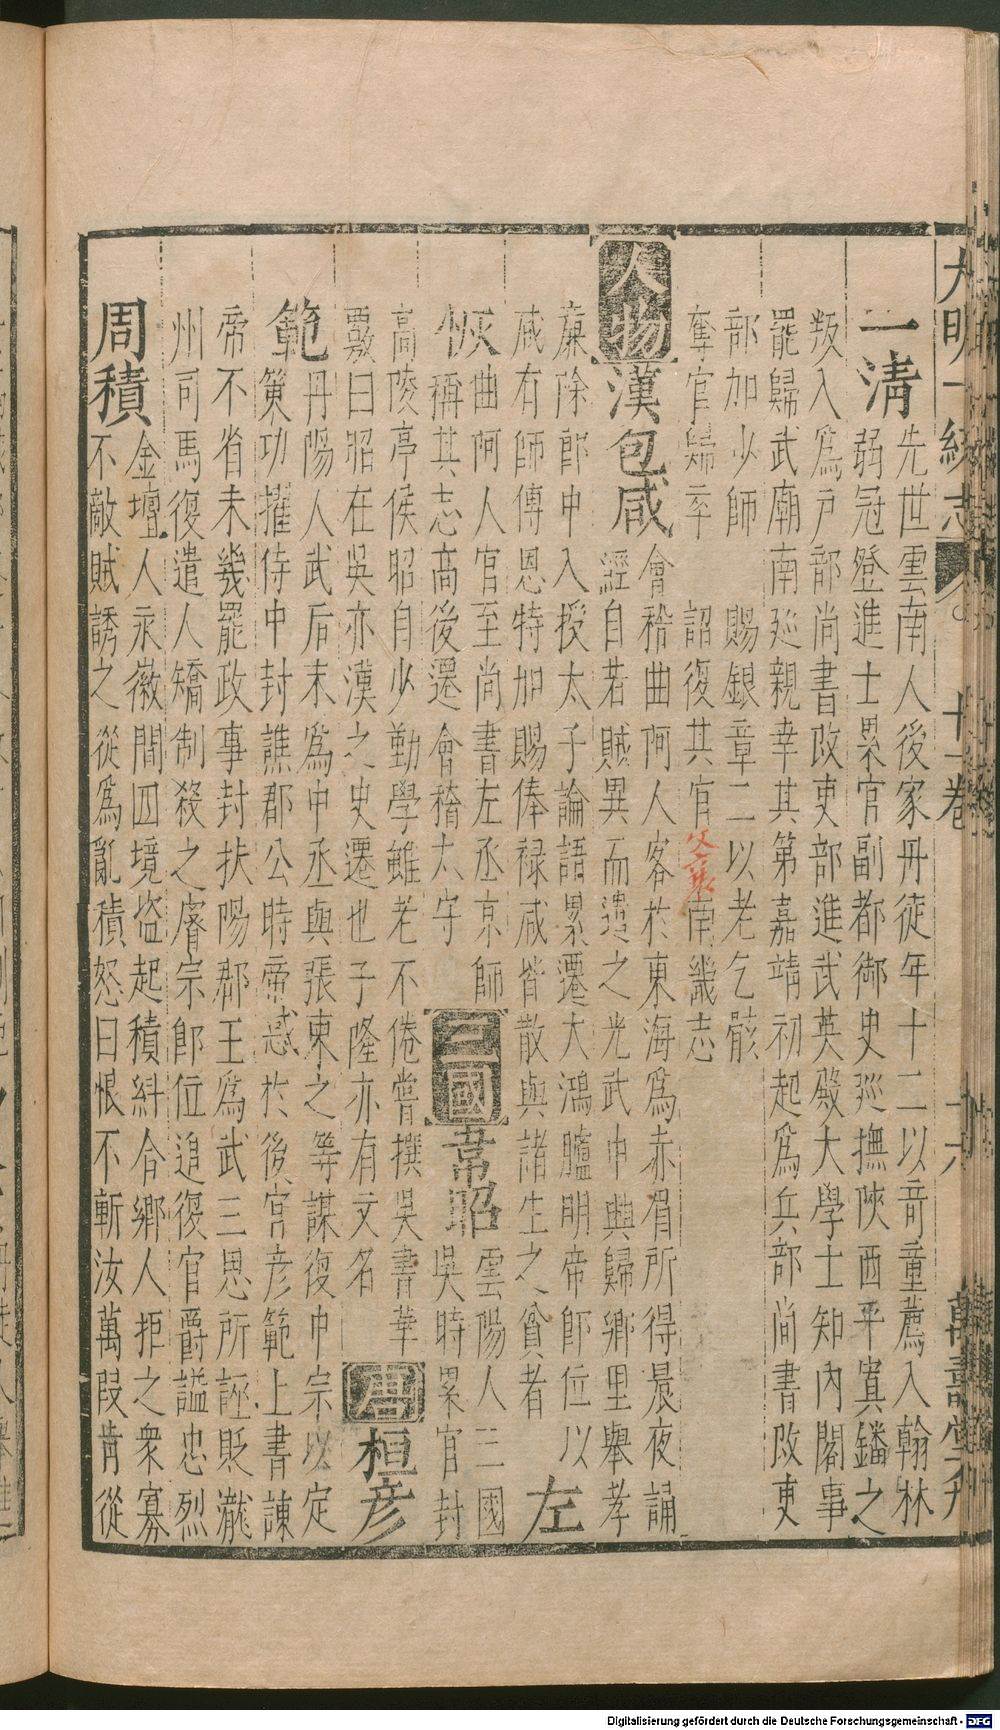 大明一統志 十一卷 十六 萬壽堂刋
一清 先世雲南人後家丹徒年十二以竒童薦入翰林
弱冠登進士累官副都御史廵撫陝西平寘鐇之
叛入爲戸部尚書改吏部進武英殿大學士知内閣事
罷歸武廟南廵親幸其第嘉靖初起爲兵部尚書改吏
部加少師 賜銀章二以老乞骸
奪官歸卒 詔復其官 文襄 南畿志
人物 漢包咸 會稽曲阿人客於東海爲赤眉所得晨夜誦
經自若賊異而遣之光武中興歸鄉里舉孝
廉除郎中入授太子論語累遷大鴻臚明帝即位以
咸有師傅恩特加賜俸禄咸皆散與諸生之貧者 左
恢 曲阿人官至尚書左丞京師
稱其志高後遷會稽太守 三國 韋昭 雲陽人三國
吳時累官封
高陵亭侯昭自少勤學雖老不倦嘗撰吳書華
覈曰昭在吳亦漢之史遷也子隆亦有文名 唐 桓彦
範 丹陽人武后末爲中丞與張柬之等謀復中宗以定
策功擢侍中封譙郡公時帝惑於後宫彦範上書諫
帝不省未幾罷政事封扶陽郡王爲武三思所誣貶瀧
州司馬復遣人矯制殺之睿宗即位追復官爵謚忠烈
周積 金壇人永徽間四境盗起積糾合鄉人拒之衆寡
不敵賊誘之從爲亂積怒曰恨不斬汝萬叚肯從
Digitalisierung gefördert durch die Deutsche Forschungsgemeinschaft - DFG